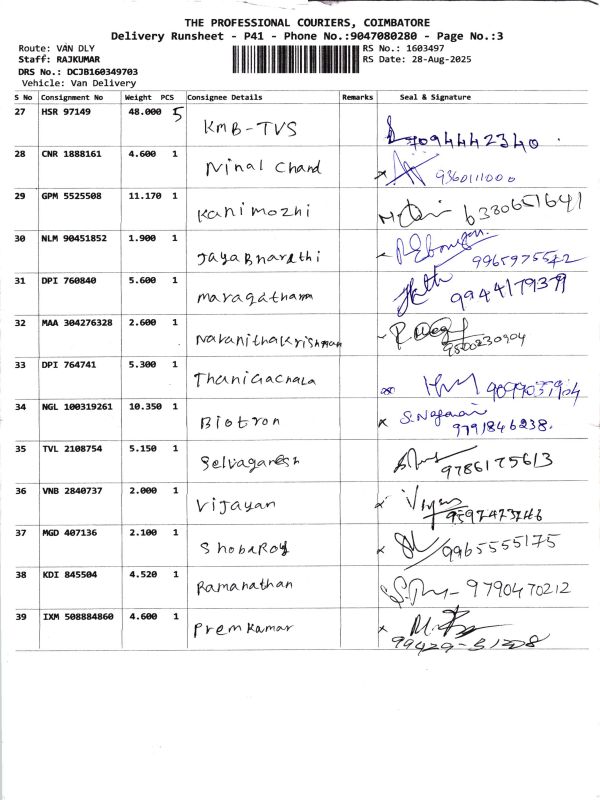 THE PROFESSIONAL COURIERS, COIMBATORE
Delivery Runsheet - P41 - Phone No.:9047080280 - Page No.:3
Route: VAN DLY RS No.: 1603497
Staff: RAJKUMAR RS Date: 28-Aug-2025
DRS No.: DCJB160349703
Vehicle: Van Delivery
S No Consignment No Weight PCS Consignee Details Remarks Seal & Signature
27 HSR 97149 48.000 5 KMB-TVS 7094442340
28 CNR 1888161 4.600 1 Ninal Chand 9360111000
29 GPM 5525508 11.170 1 Kanimozhi 6380651641
30 NLM 90451852 1.900 1 JayaBharathi 9965975542
31 DPI 760840 5.600 1 maragatham 9944179379
32 MAA 304276328 2.600 1 NavanithaKrishnan 9500230904
33 DPI 764741 5.300 1 Thanigachala
34 NGL 100319261 10.350 1 Biotron S. Nagamani 9791846238.
35 TVL 2108754 5.150 1 Selvaganesh 9786175613
36 VNB 2840737 2.000 1 Vijayan
37 MGD 407136 2.100 1 ShobaRoy 9965555175
38 KDI 845504 4.520 1 Ramanathan 9790470212
39 IXM 508884860 4.600 1 PremKumar 99429-51208